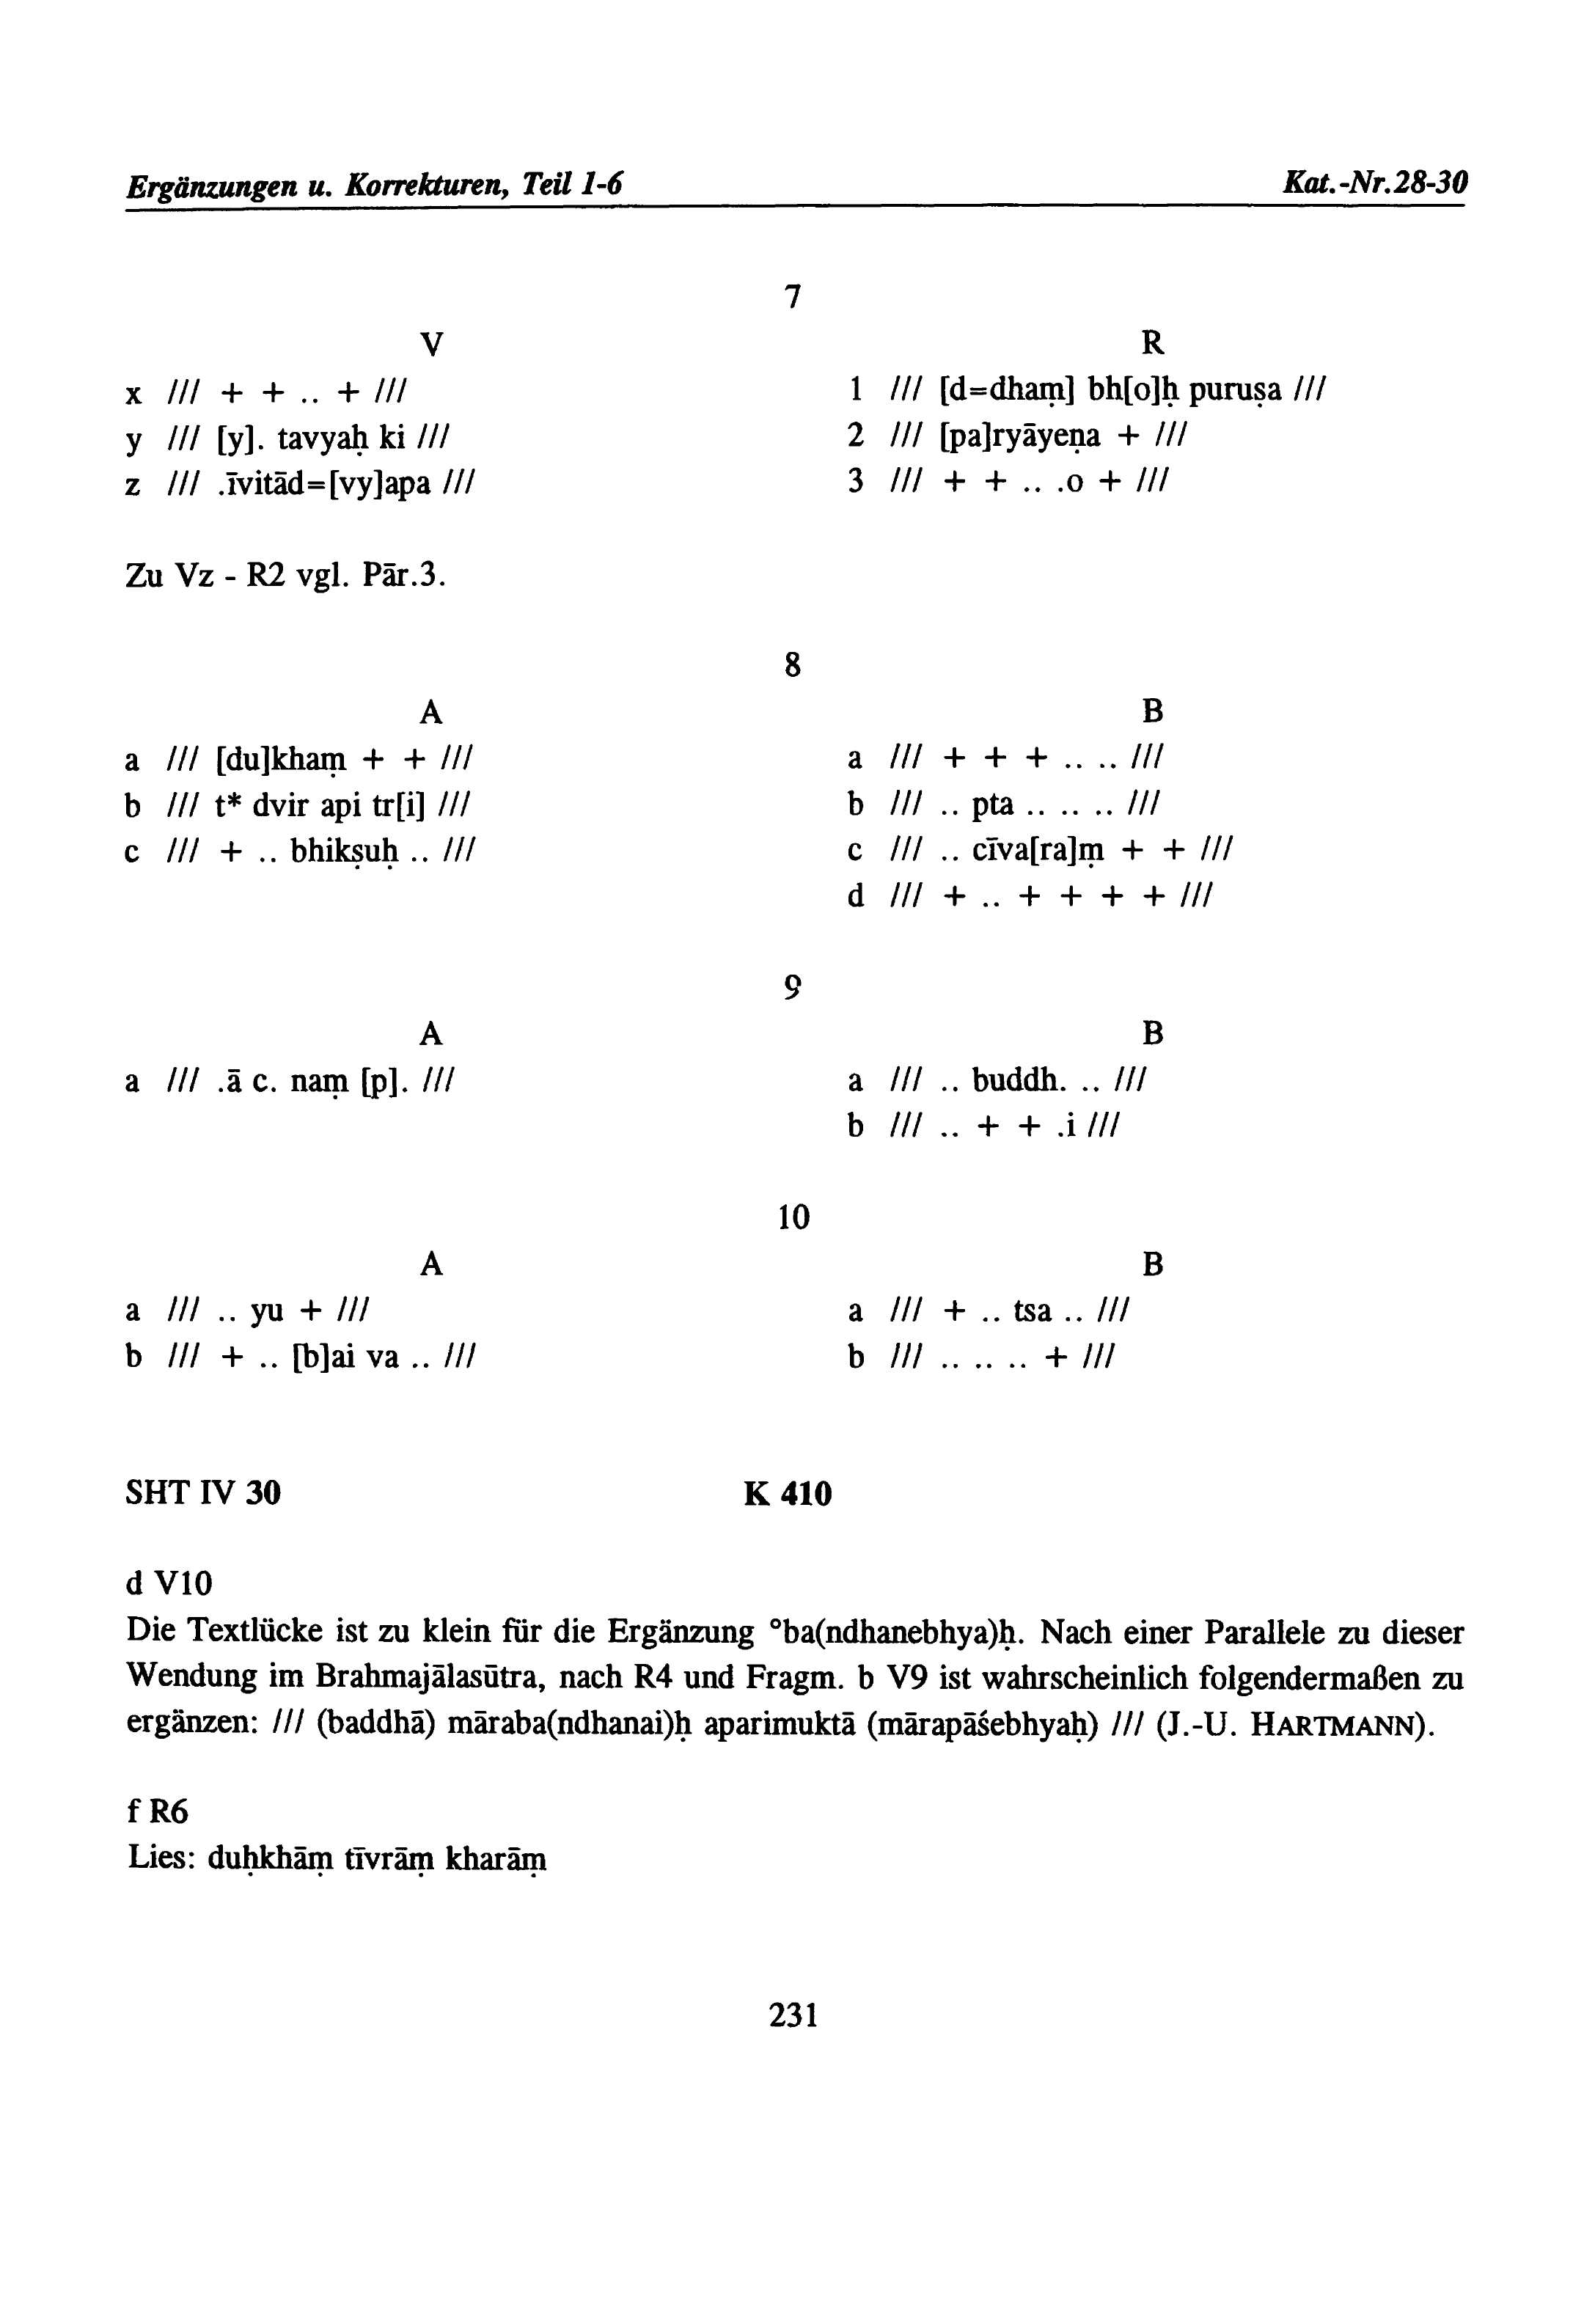 Ergänzungen u. Korrekturen, Teil 1-6 Kat.-Nr.28-30
7
V
x /// + + .. + ///
y /// [y]. tavyaḥ ki ///
z /// .īvitād=[vy]apa ///
R
1 /// [d=dhaṃ] bh[o]ḥ puruṣa ///
2 /// [pa]ryāyeṇa + ///
3 /// + + .. .o + ///
Zu Vz - R2 vgl. Pār.3.
8
A
a /// [du]khaṃ + + ///
b /// t* dvir api tr[i] ///
c /// + .. bhikṣuḥ .. ///
B
a /// + + + .. .. ///
b /// .. pta .. .. .. ///
c /// .. cīva[ra]ṃ + + ///
d /// + .. + + + + ///
9
A
a /// .ā c. naṃ [p]. ///
B
a /// .. buddh. .. ///
b /// .. + + .i ///
10
A
a /// .. yu + ///
b /// + .. [b]ai va .. ///
B
a /// + .. tsa .. ///
b /// .. .. .. + ///
SHT IV 30 K 410
d V10
Die Textlücke ist zu klein für die Ergänzung °ba(ndhanebhya)ḥ. Nach einer Parallele zu dieser
Wendung im Brahmajālasūtra, nach R4 und Fragm. b V9 ist wahrscheinlich folgendermaßen zu
ergänzen: /// (baddhā) māraba(ndhanai)ḥ aparimuktā (mārapāśebhyaḥ) /// (J.-U. HARTMANN).
f R6
Lies: duḥkhāṃ tīvrāṃ kharāṃ
231